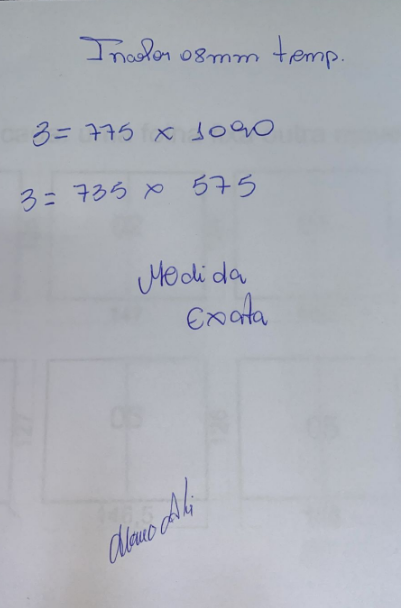 Incolor 08mm temp.
3= 775 x 1090
3= 735 x 575
Medida
Exata